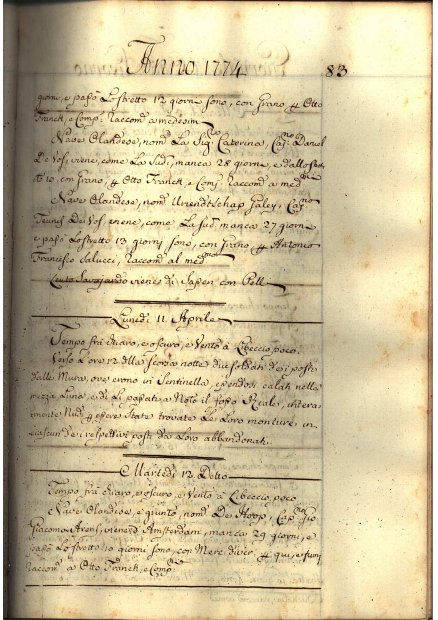 Anno 1774
83
giorni, e passò Lo stretto 12 giorni sono, con Grano, p Otto
Franck, e Comp. Raccom. a medesim
Nave Olandese, nom. La Sig. Caterina, Cap.no Daniel
De Vos, viene, come La Sud. manca 28 giorni, e dallo stret
to 10, con grano, p Otto Franck, e Comp. Raccom. a med
Nave Olandese, nom. Vriendtschap Galey, Cap.no
Teunis De Vos, e viene, come La Sud. manca 27 giorni
e passò Lo stretto 13 giorni sono, con Grano p Antonio
Francesco Salucci, Raccom. al med.mo
Leuto Savojardo viene di con Pell
Lunedì 11 Aprile
Tempo frà chiaro, e oscuro, e Vento à Libeccio, poco.
Verso L'ore 12 della scorsa notte due soldati dei posti
dalle Mura, ove erono in Sentinella, essendosi calati nella
mezza Luna, e di Lì passati a Noto il fosso Reale, intera
mente Nudi p essere State trovate Le Loro monture in
ciascun de i respettivi posti da Loro abbandonati.
Martedì 12 Detto
Tempo frà chiaro, e oscuro, e Vento à Libeccio, poco
Nave Olandese, è giunto, nom. De Hoop, Cap.no Gio
Giacomo Arens, viene d Amsterdam, manca 29 giorni, e
passò Lo stretto 10 giorni sono, con Merc. diver. p qui, e fuori
Raccom. a Otto Franck, e Comp.